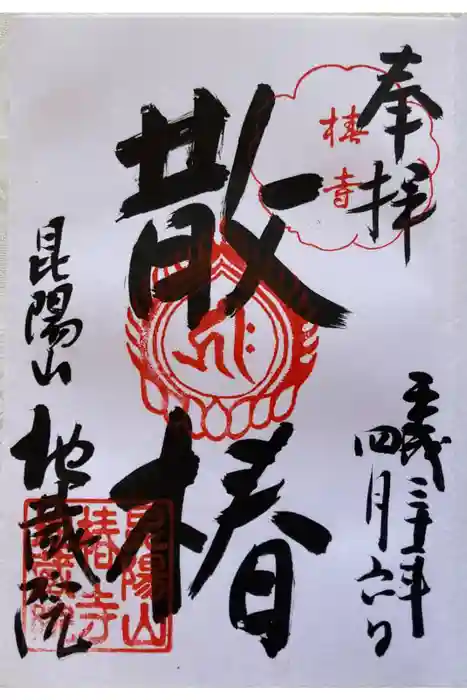 奉拝
椿寺
平成三十一年
四月六日
散椿
昆陽山
地蔵院
昆陽山
椿寺
地蔵院